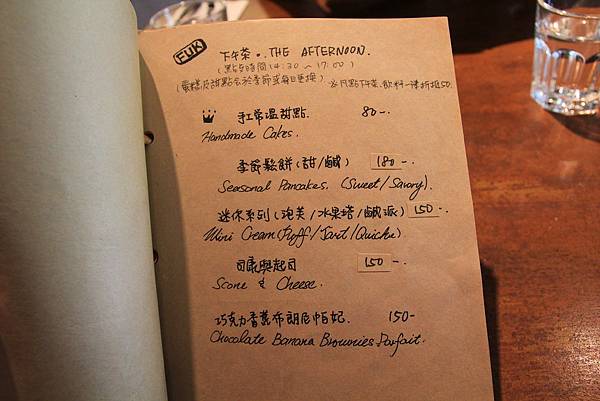 FUK
下午茶. THE AFTERNOON.
(點店時間14:30 ~ 17:00)
(蛋糕及甜點会於季節或每日更換) ※凡點下午茶,飲料一律折抵50.
手工常溫甜點. 80-.
Handmade Cakes.
季節鬆餅(甜/鹹) 180-.
Seasonal Pancakes. (Sweet/Savory).
迷你系列(泡芙/水果塔/鹹派) 150-.
Mini Cream(Puff/Tart/Quiche)
司康與起司 150-.
Scone & Cheese.
巧克力香蕉布朗尼帕妃. 150-
Chocolate Banana Brownies Parfait.